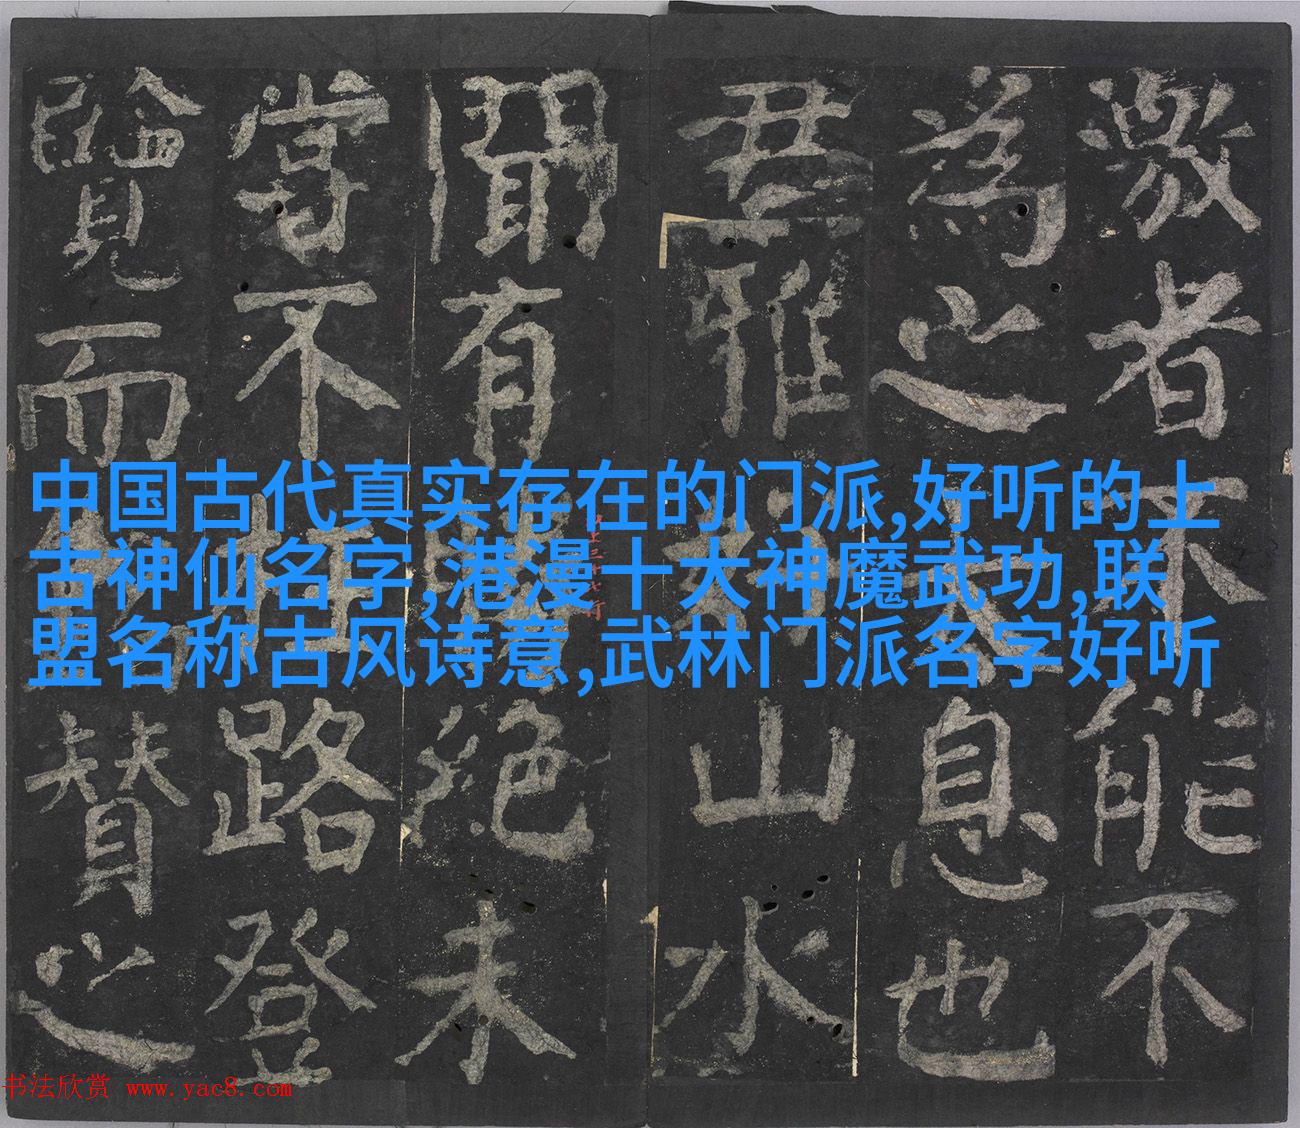 激者不能不
為之太息也
君雅好山水
聞有勝絕未
嘗不枉路登
覽而贊之
中国古代真实存在的门派,好听的上
古神仙名字,港漫十大神魔武功,联
盟名称古风诗意,武林门派名字好听
书法欣赏 www.yac8.com